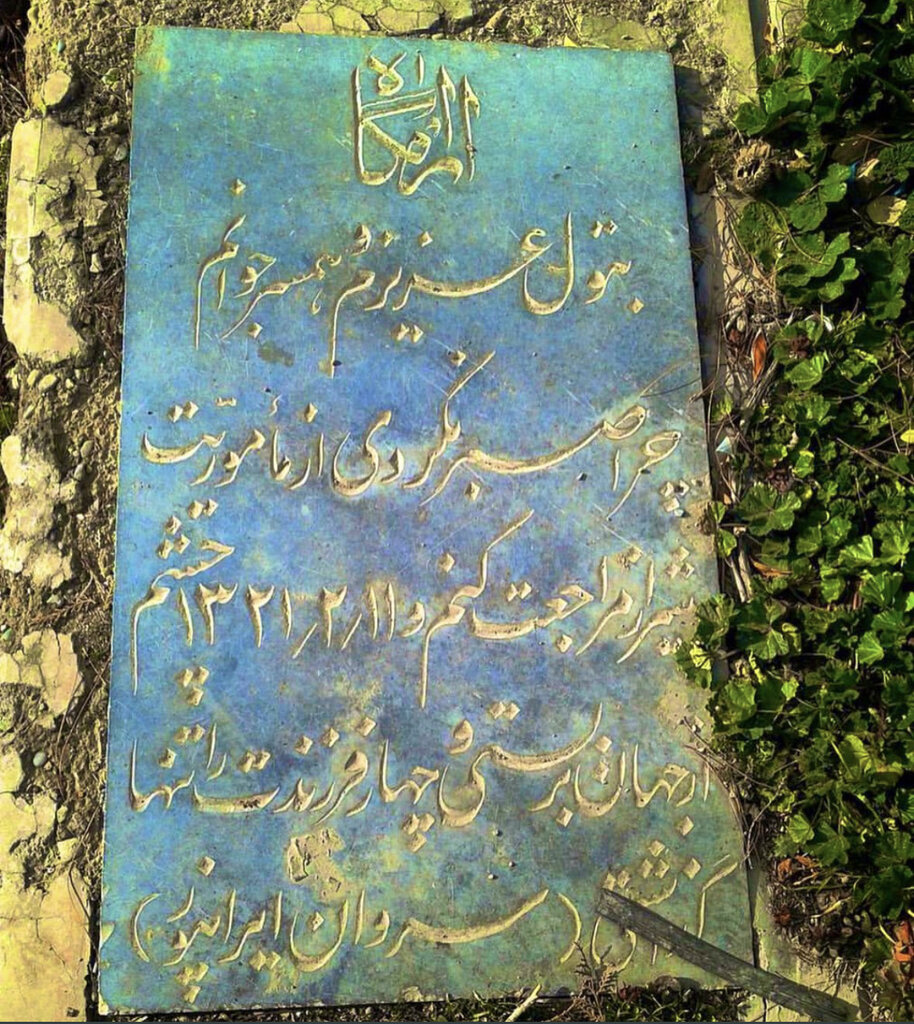 آرامگاه
بتول عزیزم و همسر جوانم
چرا صبر نکردی از مأموریّت
شیراز مراجعت کنم و ۱۳۲۱٫۲٫۱۱ چشم
از جهان بربستی و چهار فرزندت را تنها
گذاشتی (سروان ایرانپور)